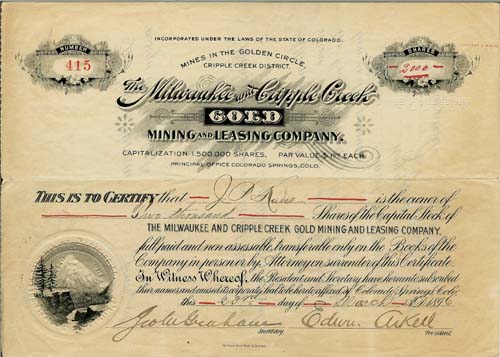 INCORPORATED UNDER THE LAWS OF THE STATE OF COLORADO.
NUMBER
415
MINES IN THE GOLDEN CIRCLE,
CRIPPLE CREEK DISTRICT.
SHARES
2000
The Milwaukee and Cripple Creek
GOLD
MINING AND LEASING COMPANY.
CAPITALIZATION 1,500,000 SHARES, PAR VALUE $1.00 EACH.
PRINCIPAL OFFICE COLORADO SPRINGS, COLO.
THIS IS TO CERTIFY that J. P. is the owner of
Two thousand Shares of the Capital Stock of
THE MILWAUKEE AND CRIPPLE CREEK GOLD MINING AND LEASING COMPANY,
full paid and non assessable, transferable only on the Books of the
Company in person or by Attorney on surrender of this Certificate.
In Witness Whereof, the President and Secretary have hereunto subscribed
their names and caused its corporate Seal to be hereto affixed at Colorado Springs, Colo.
this 23rd day of March 1896
Graham Edwin
Secretary. President.